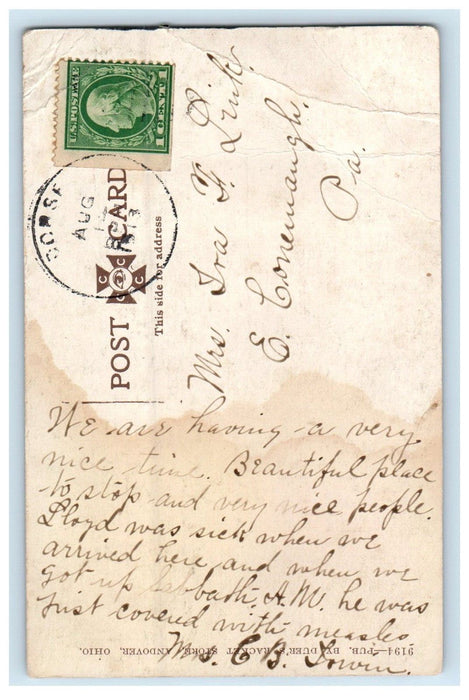 U.S. POSTAGE
1 CENT 1
DORSE
AUG
1913
POST CARD
C C C C
This side for address
Mrs. Ira F. Link.
E. Conemaugh,
Pa.
We are having a very
nice time. Beautiful place
to stop and very nice people.
Lloyd was sick when we
arrived here and when we
got up Sabbath A.M. he was
just covered with measles
Mrs. C. B.
9194—PUB. BY DUER'S RACKET STORE, ANDOVER, OHIO.